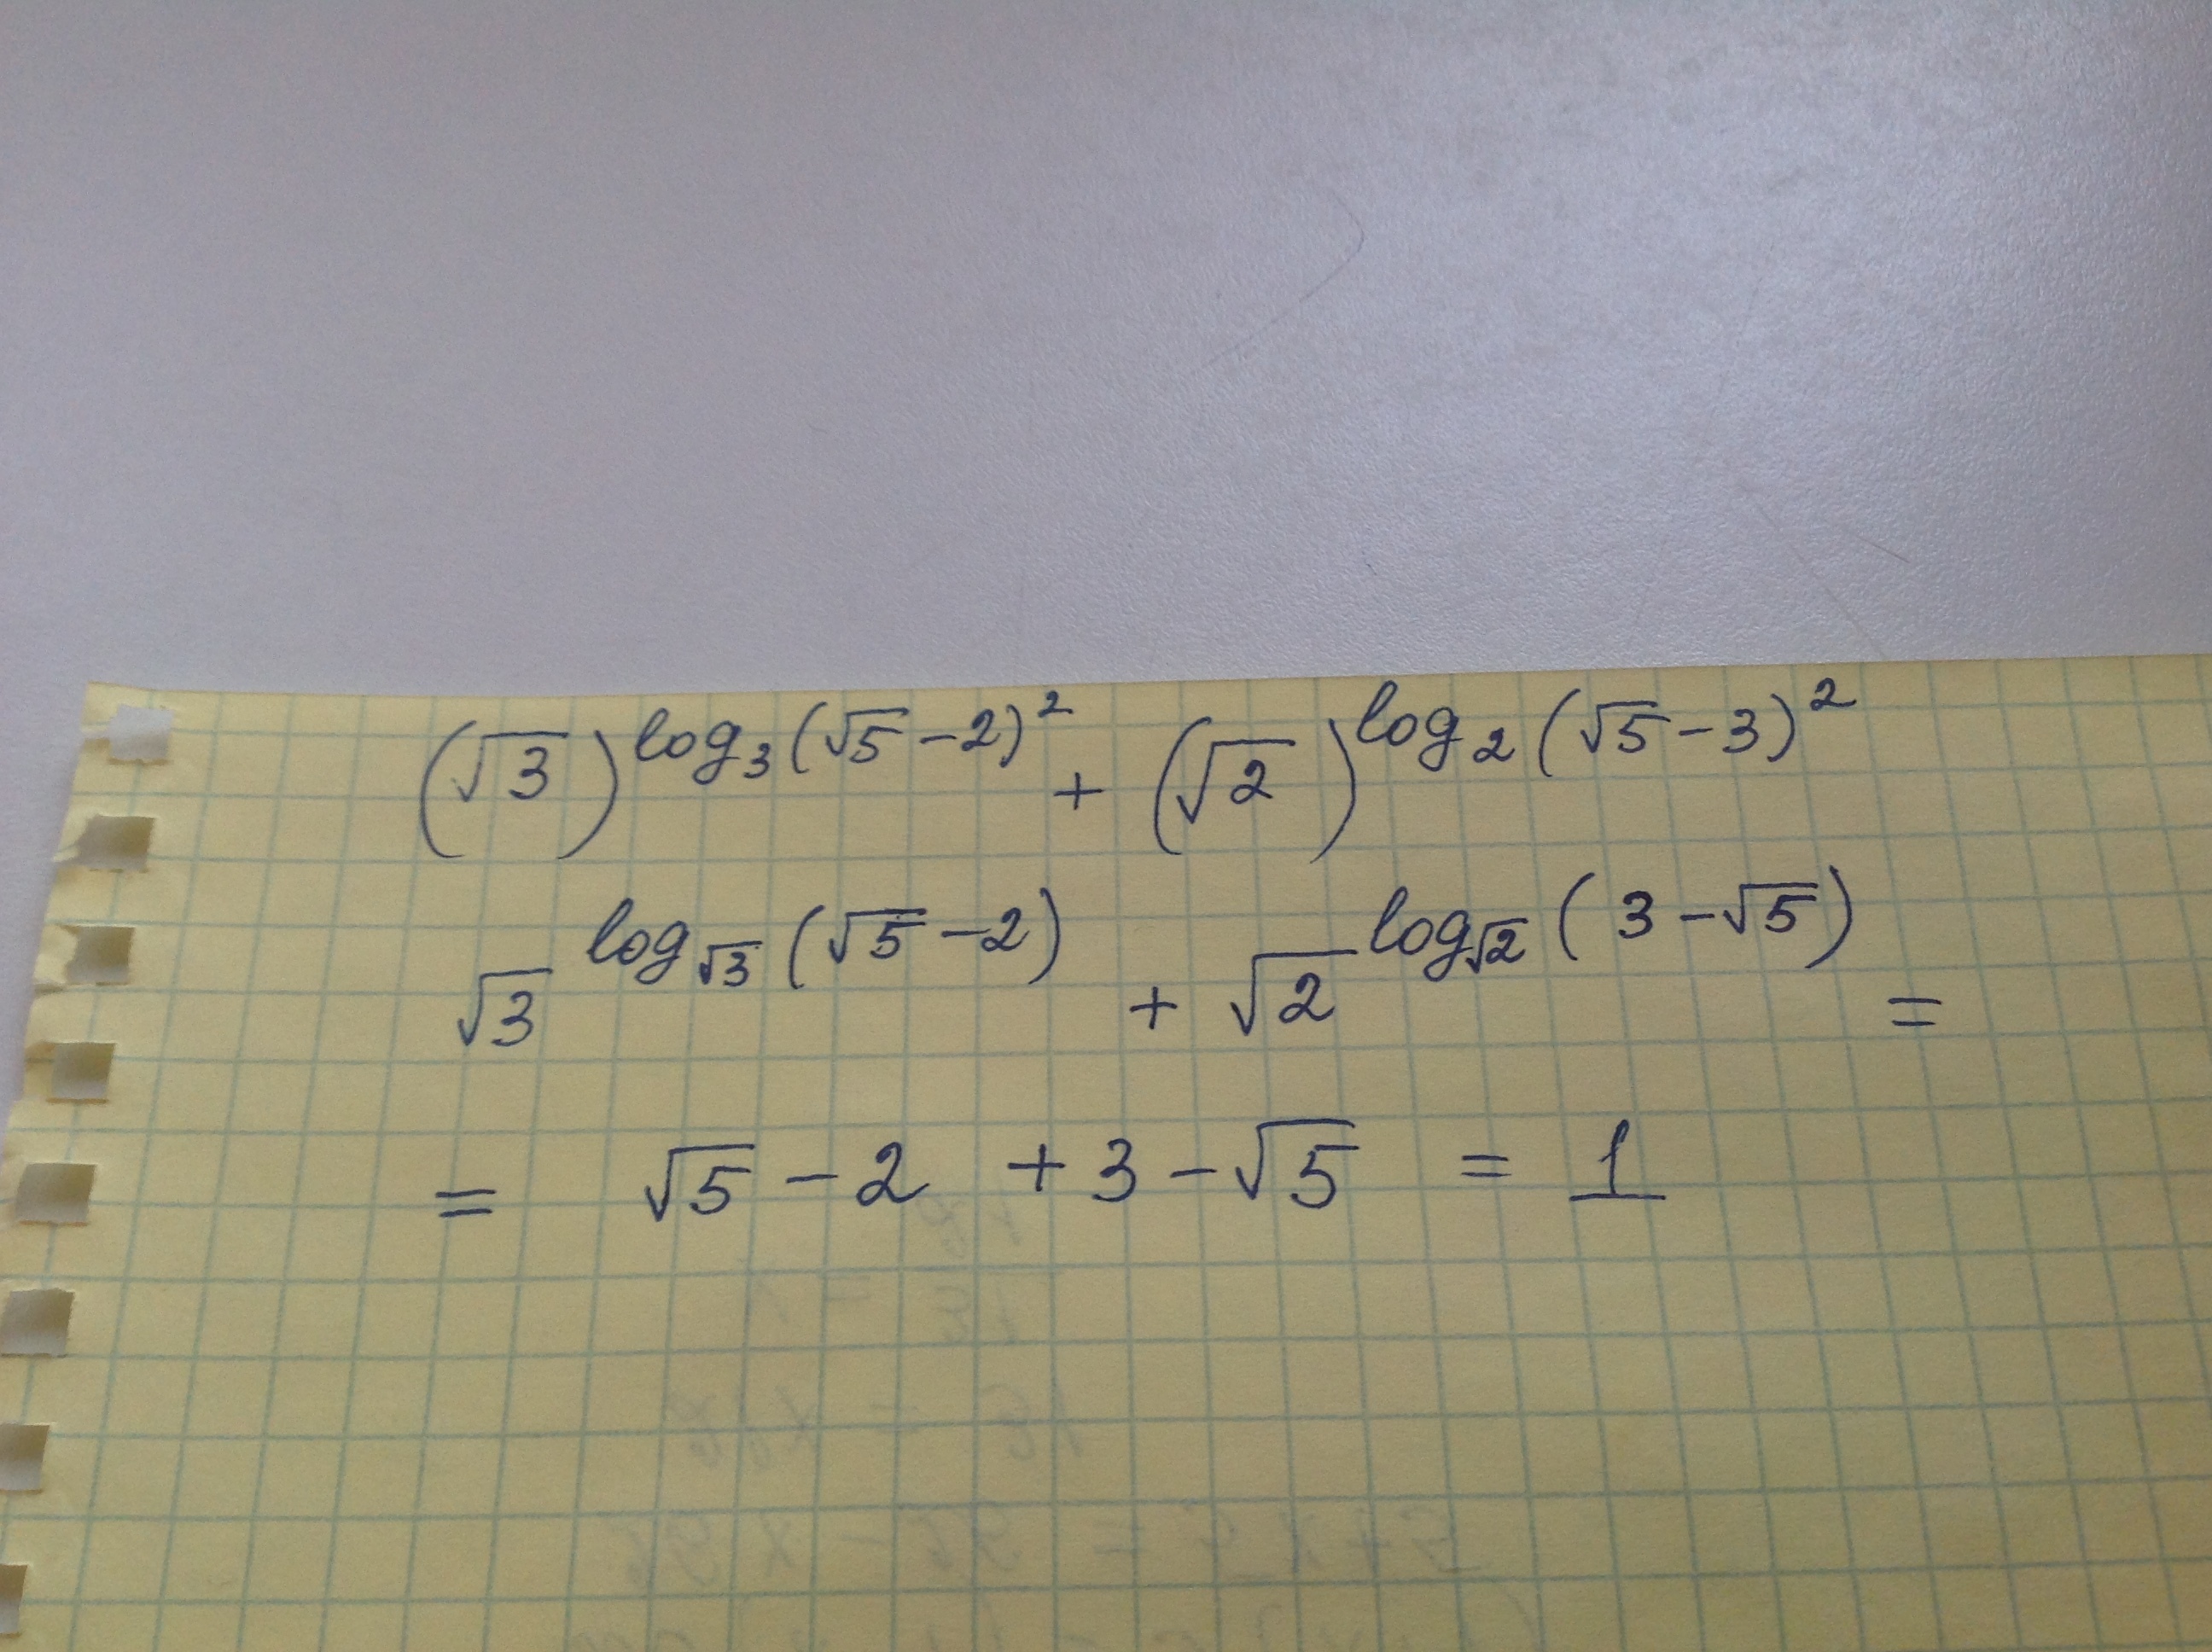 (√3)^log₃(√5-2)² + (√2)^log₂(√5-3)²
√3^log_√3(√5-2) + √2^log_√2(3-√5) =
= √5-2 +3-√5 = 1